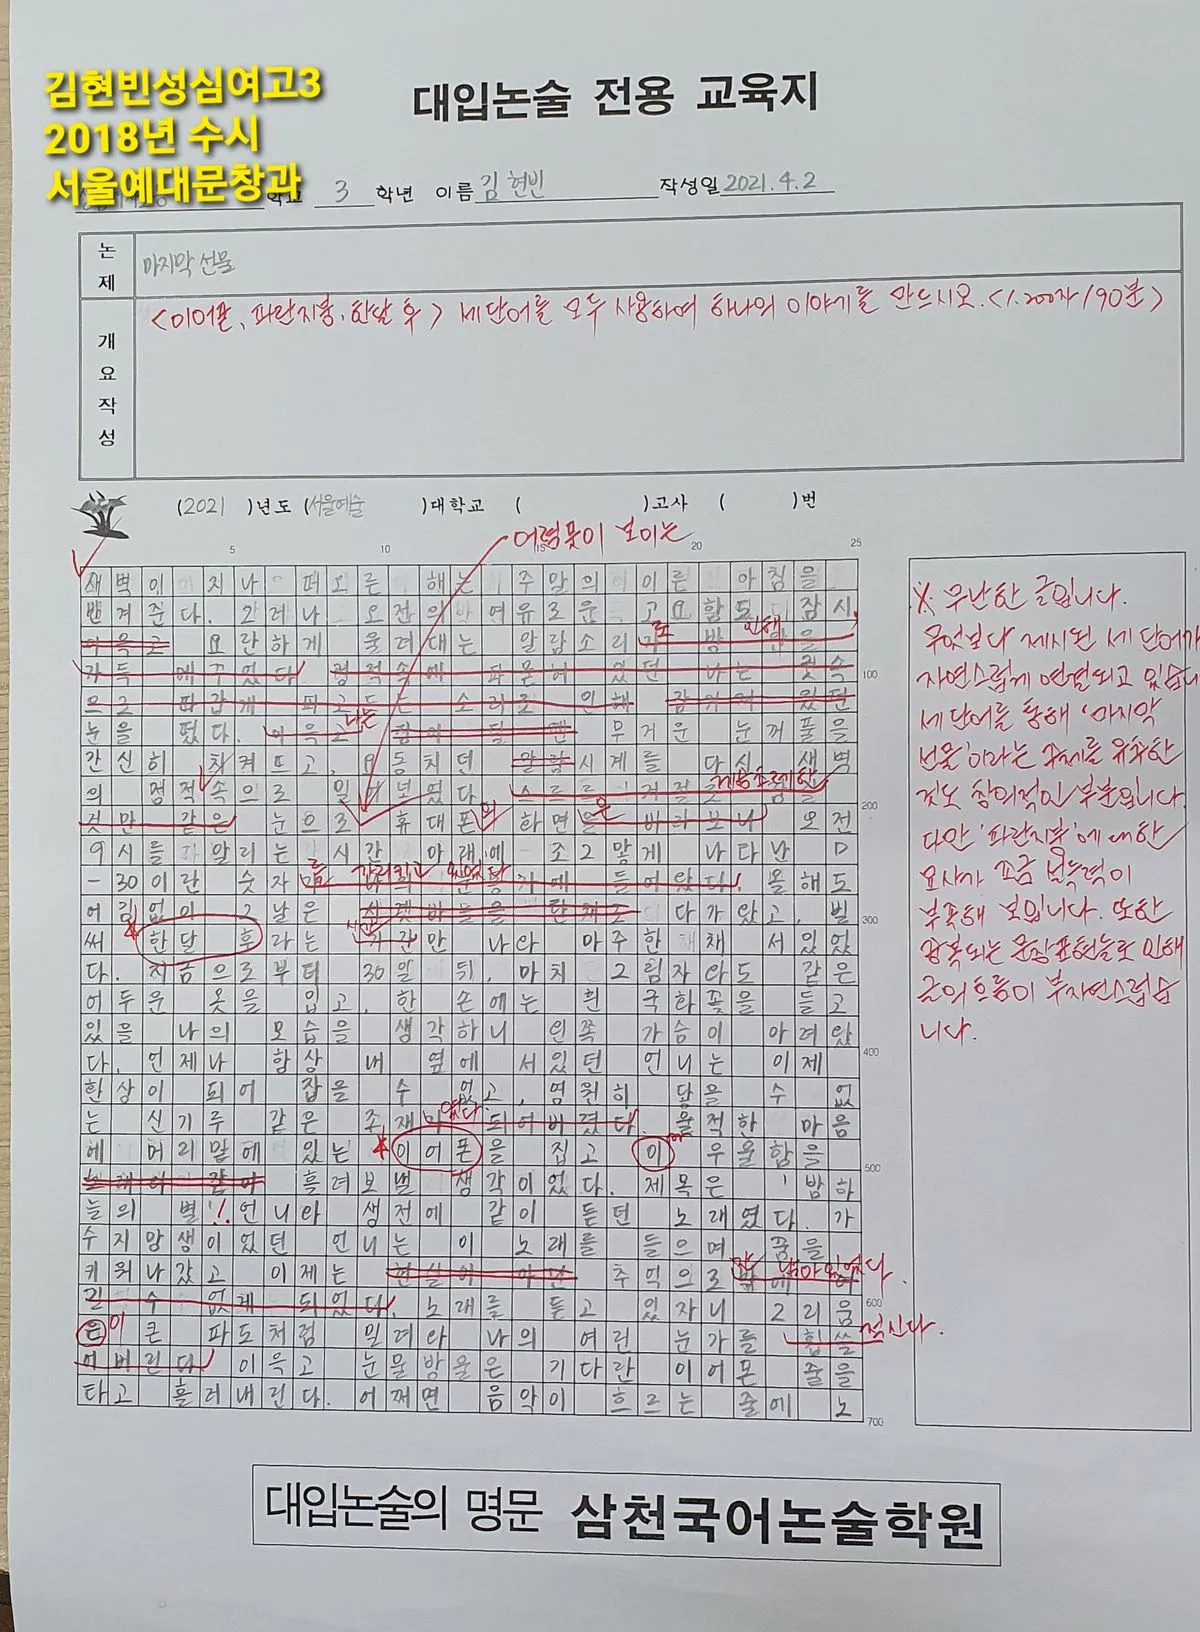 김현빈성심여고3
2018년 수시
서울예대문창과
대입논술 전용 교육지
학교 3 학년 이름 김현빈 작성일 2021.4.2
논제 마지막 선물
개요작성
<이어폰, 파란지붕, 한달 후> 세 단어를 모두 사용하여 하나의 이야기를 만드시오. <1.200자/90분>
(2021 )년도 (서울예술 )대학교 ( )고사 ( )번
어렴풋이 보이는
5 10 15 20 25
새벽이 지나 떠오른 해는 주말의 이른 아침을
반겨준다. 그러나 오전의 여유로운 고요함도 잠시,
이윽고 요란하게 울려대는 알람소리가 방 안을
로 인해
가득 메꾸었다. 정적속에 파묻혀 있던 나는 귓속
100
으로 따갑게 파고드는 소리로 인해 감겨져 있던
눈을 떴다. 이윽고 잠이 덜 깬 무거운 눈꺼풀을
나는
간신히 치켜뜨고, 요동치던 알람시계를 다시 새벽
의 정적속으로 밀어넣었다. 스르르
게슴츠레한
200
것만 같은 눈으로 휴대폰 화면을 바라보니 오전
의 은
9시를 알리는 시간 아래에 조그맣게 나타난 D
-30이란 숫자
를 가리키고 있었다
들어왔다. 올해도
어김없이 그날은 다가왔고, 벌
300
써 한달 후라는 기간만 나와 마주한 채 서있었
시간
다. 지금으로부터 30일 뒤, 마치 그림자와도 같은
어두운 옷을 입고, 한 손에는 흰 국화꽃을 들고
있을 나의 모습을 생각하니 왼쪽 가슴이 아려왔
400
다. 언제나 항상 내 옆에 서있던 언니는 이제
환상이 되어 잡을 수 없고, 영원히 닿을 수 없
는 신기루 같은 존재가 되어버렸다. 울적한 마음
였다.
에 머리맡에 있는 이어폰을 집고 이 우울함을
500
노래와 같이 흘려보낼 생각이었다. 제목은 '밤하
늘의 별'! 언니와 생전에 같이 듣던 노래였다. 가
수지망생이었던 언니는 이 노래를 들으며 꿈을
키워나갔고 이제는 현실이 아닌 추억으로밖에
만 남아있었다.
600
질 수 없게 되었다. 노래를 듣고 있자니 그리움
은 큰 파도처럼 밀려와 나의 여린 눈가를 휩쓸
이 적신다.
어버린다. 이윽고 눈물방울은 기다란 이어폰 줄을
타고 흘러내린다. 어쩌면 음악이 흐르는 줄에 노
700
※ 무난한 글입니다.
무엇보다 제시된 세 단어가
자연스럽게 연결되고 있습니다
세 단어를 통해 '마지막
선물'이라는 주제를 유추한
것도 창의적인 부분입니다
다만 '파란지붕'에 대한
묘사가 조금 설득력이
부족해 보입니다. 또한
중복되는 문장표현들로 인해
글의 흐름이 부자연스럽습
니다.
대입논술의 명문 삼천국어논술학원